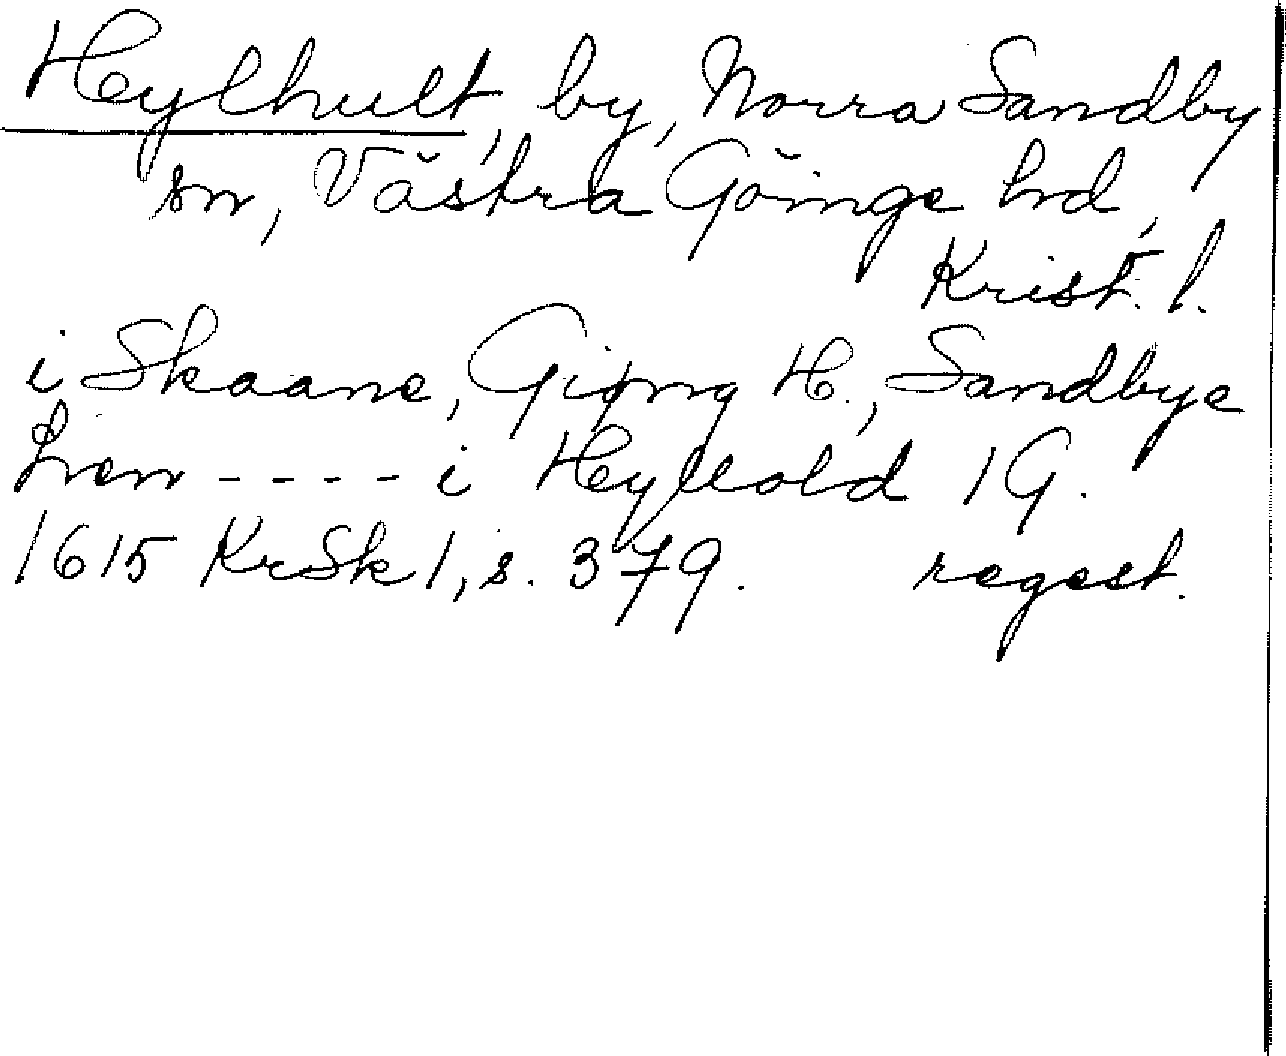 Heylhult, by, Norra Sandby
sn, Västra Göinge hd,
Krist. l.
i Skaane, Giøng H., Sandbye
Len - - - - i Heylleold 1 G.
1615 KrSk 1, s. 379. regest.